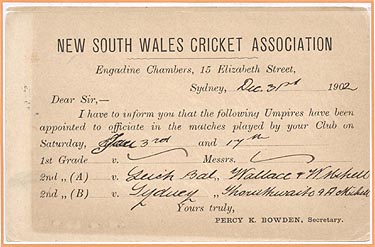 NEW SOUTH WALES CRICKET ASSOCIATION
Engadine Chambers, 15 Elizabeth Street,
Sydney, Dec. 31st 1902
Dear Sir,—
I have to inform you that the following Umpires have been
appointed to officiate in the matches played by your Club on
Saturday, Jan 3rd and 17th
1st Grade v. Messrs. v.
2nd „ (A) v. Leich Bat, Wallace &
2nd „ (B) v. Sydney „ & A
Yours truly,
PERCY K. BOWDEN, Secretary.